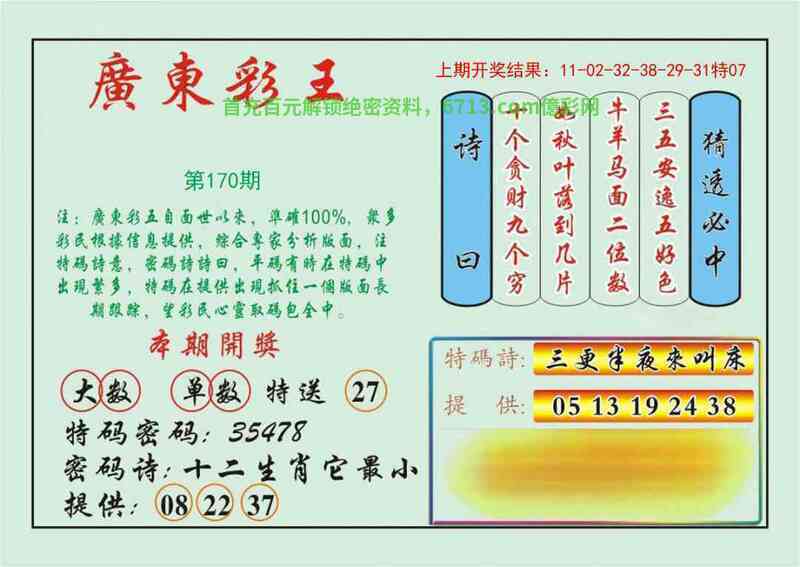 廣東彩王
上期开奖结果：11-02-32-38-29-31特07
首充百元解锁绝密资料，6713.com億彩网
第170期
注：廣東彩五自面世以來，準確100%，衆多
彩民根據信息提供，綜合專家分析版面，注
特碼詩意，密碼詩詩曰，平碼有時在特碼中
出現繁多，特碼在提供出現抓住一個版面長
期跟踪，望彩民心靈取碼包全中。
诗曰
十个贪财九个穷
如秋叶落到几片
牛羊马面二位数
三五安逸五好色
猜透必中
本期開獎
大数 单数 特送 27
特码密码：35478
密码诗：十二生肖它最小
提供：08 22 37
特碼詩：三更半夜來叫床
提供：05 13 19 24 38